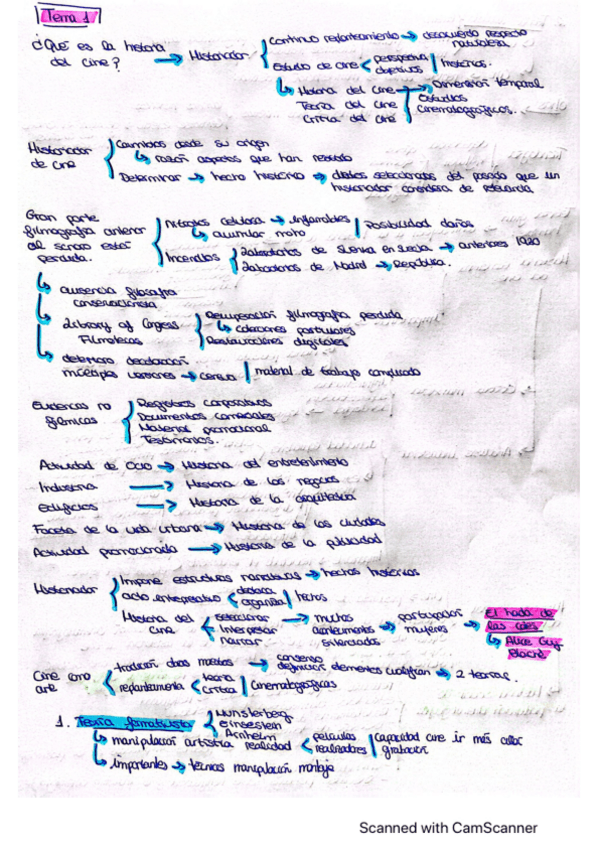 Tema 1
¿Qué es la historia del cine? → Historiador
Continuo replanteamiento → desacuerdo respecto naturaleza
Estudio de cine < perspectiva objetivos | históricos.
Historia del cine → Dimensión temporal
Teoría del cine
Crítica del cine
Estudios cinematográficos.
Historiador de cine
Cambios desde su origen
razón aspectos que han restado
Determinar → hecho histórico → datos seleccionados del pasado que un historiador considera de relevancia
Gran parte filmografía anterior al sonoro está perdida.
Nitratos celulosa → inflamables | Posibilidad daños
acumular
Incendios
Laboratorios de Svenka en Suecia → anteriores 1920
Laboratorios de Madrid → República.
ausencia filosofía conservacionista
Library of Congress Filmotecas
Recuperación filmografía perdida
colecciones particulares
Restauraciones digitales
deterioro decoloración
múltiples versiones → censura | material de trabajo complicado
Evidencias no fílmicas
Registros corporativos
Documentos comerciales
Material promocional
Testimonios.
Actividad de Ocio → Historia del entretenimiento
Industria → Historia de los negocios
edificios → Historia de la arquitectura
Faceta de la vida urbana → Historia de las ciudades
Actividad promocionada → Historia de la publicidad
Historiador
Impone estructuras narrativas → hechos históricos
acto interpretativo < destaca organiza | hechos
Historia del cine
seleccionar
interpretar
narrar
→ muchos acontecimientos silenciados → participación mujeres → El hada de las coles
Alice Guy Blaché
Cine como arte
tradición otros medios → consenso definición elementos → 2 teorías.
replanteamiento < teoría crítica | cinematográficas
1. Teoría formativista
Munsterberg
Einsestein
Arnheim
manipulación artística realidad < películas realizadores | capacidad cine ir más allá grabación
importantes → técnicas manipulación montaje
Scanned with CamScanner